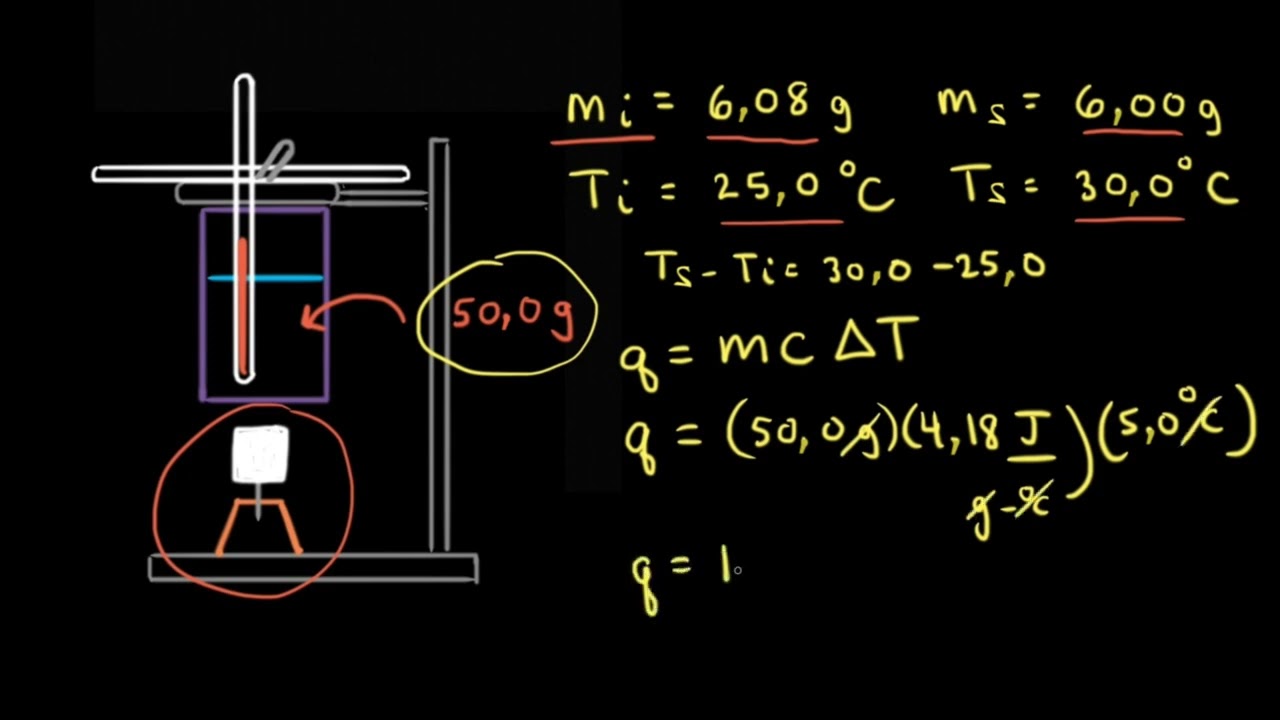 mi = 6,08 g ms = 6,00 g
Ti = 25,0 °C Ts = 30,0 °C
Ts - Ti = 30,0 - 25,0
50,0 g
q = mcΔT
q = (50,0 g)(4,18 J / g-°C)(5,0 °C)
q = 1